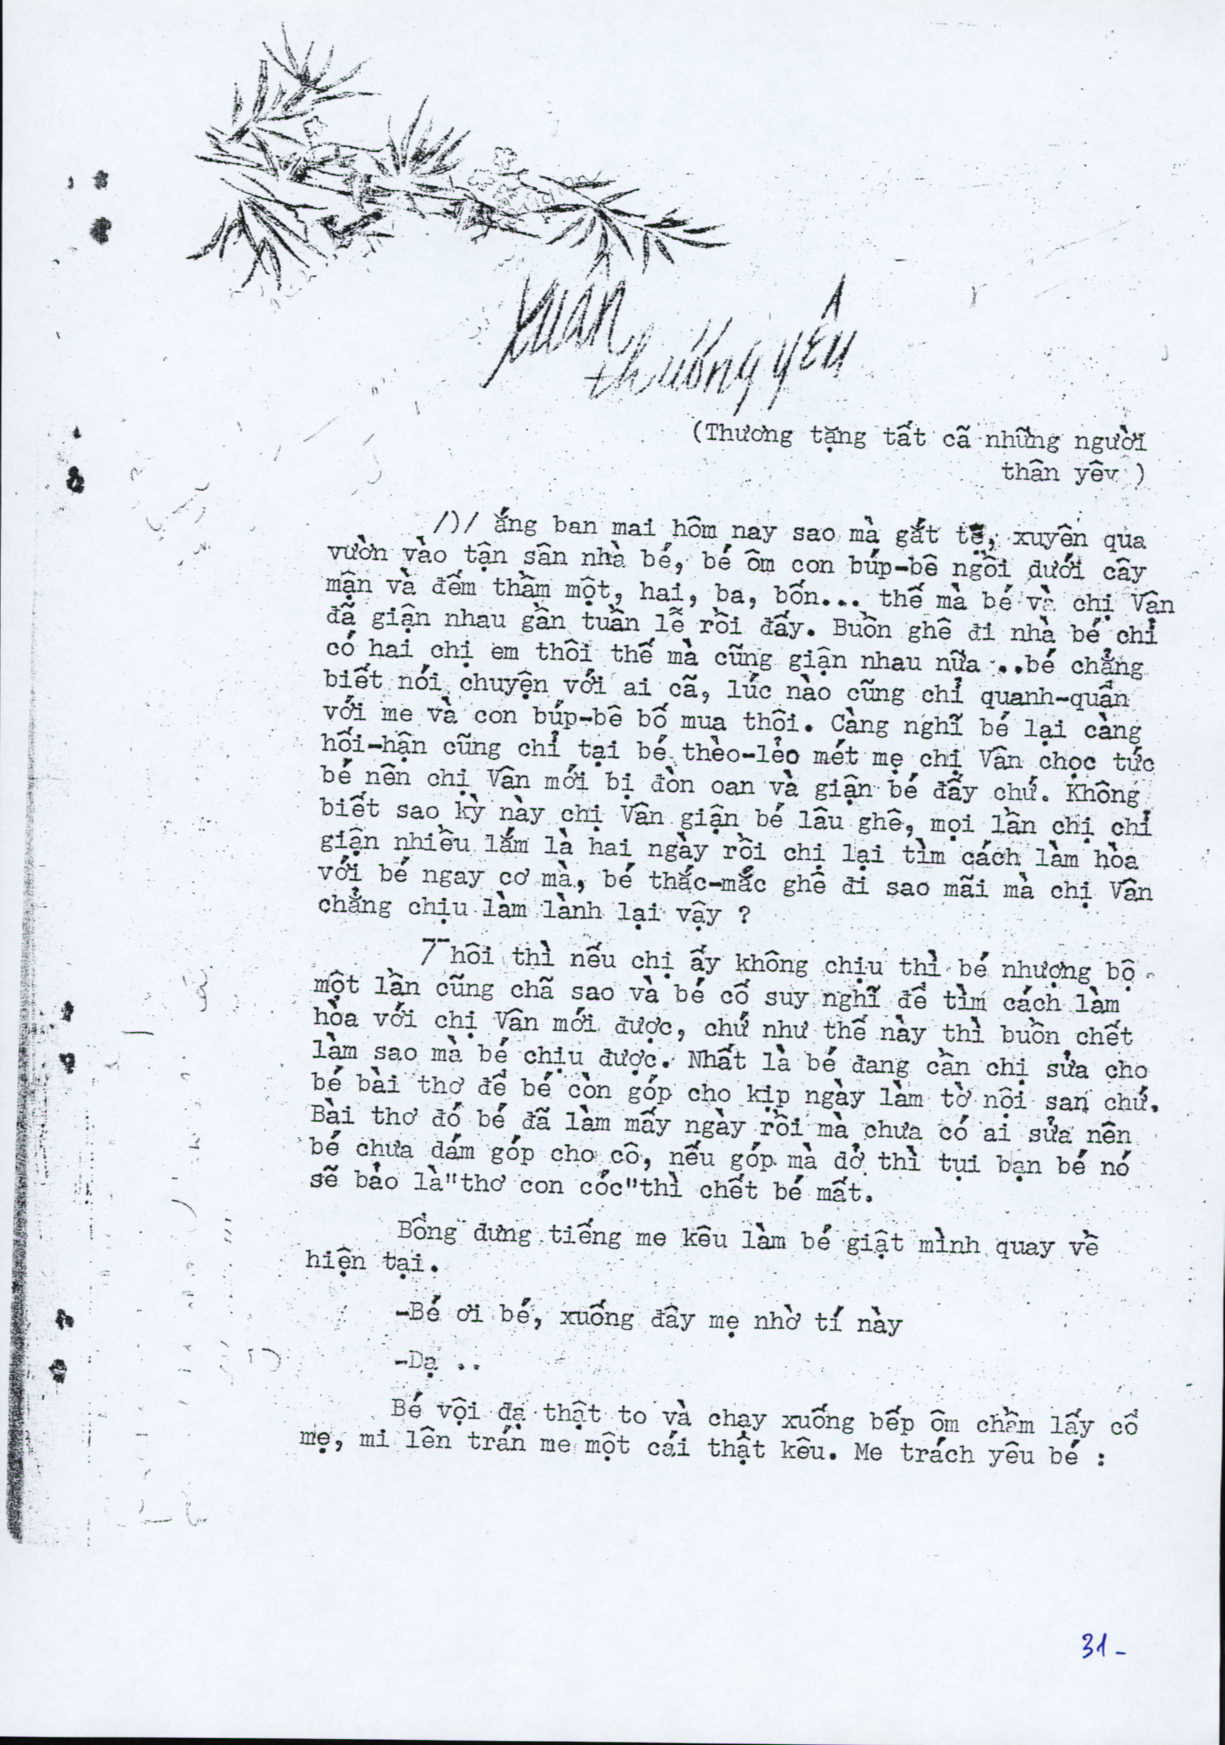 Xuân
thương yêu
(Thương tặng tất cã những người
thân yêv )
/)/ ắng ban mai hôm nay sao mà gắt tệ, xuyên qua
vườn vào tận sân nhà bé, bé ôm con búp-bê ngồi dưới cây
mận và đếm thầm một, hai, ba, bốn... thế mà bé và chị Vân
đã giận nhau gần tuần lễ rồi đấy. Buồn ghê đi nhà bé chỉ
có hai chị em thôi thế mà cũng giận nhau nữa ...bé chẳng
biết nói chuyện với ai cã, lúc nào cũng chỉ quanh-quẩn
với me và con búp-bê bố mua thôi. Càng nghĩ bé lại càng
hối-hận cũng chỉ tại bé thèo-lẻo mét mẹ chị Vân chọc tức
bé nên chị Vân mới bị đòn oan và giận bé đấy chứ. Không
biết sao kỳ này chị Vân giận bé lâu ghê, mọi lần chị chỉ
giận nhiều lắm là hai ngày rồi chị lại tìm cách làm hòa
với bé ngay cơ mà, bé thắc-mắc ghê đi sao mãi mà chị Vân
chẳng chịu làm lành lại vậy ?
Thôi thì nếu chị ấy không chịu thì bé nhượng bộ
một lần cũng chã sao và bé cố suy nghĩ để tìm cách làm
hòa với chị Vân mới được, chứ như thế này thì buồn chết
làm sao mà bé chịu được. Nhất là bé đang cần chị sửa cho
bé bài thơ để bé còn góp cho kịp ngày làm tờ nội san chứ.
Bài thơ đó bé đã làm mấy ngày rồi mà chưa có ai sửa nên
bé chưa dám góp cho cô, nếu góp mà dở thì tụi bạn bé nó
sẽ bảo là"thơ con cóc"thì chết bé mất.
Bổng dưng tiếng me kêu làm bé giật mình quay về
hiện tại.
-Bé ơi bé, xuống đây mẹ nhờ tí này
-Dạ ..
Bé vội dạ thật to và chạy xuống bếp ôm chầm lấy cổ
mẹ, mi lên trán me một cái thật kêu. Me trách yêu bé :
31-